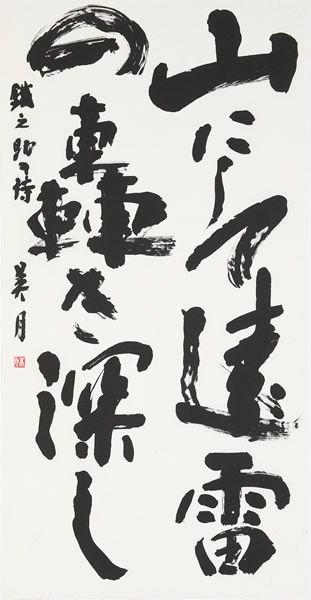 山にして遠雷
の轟き深し
鐵之助詩 美月